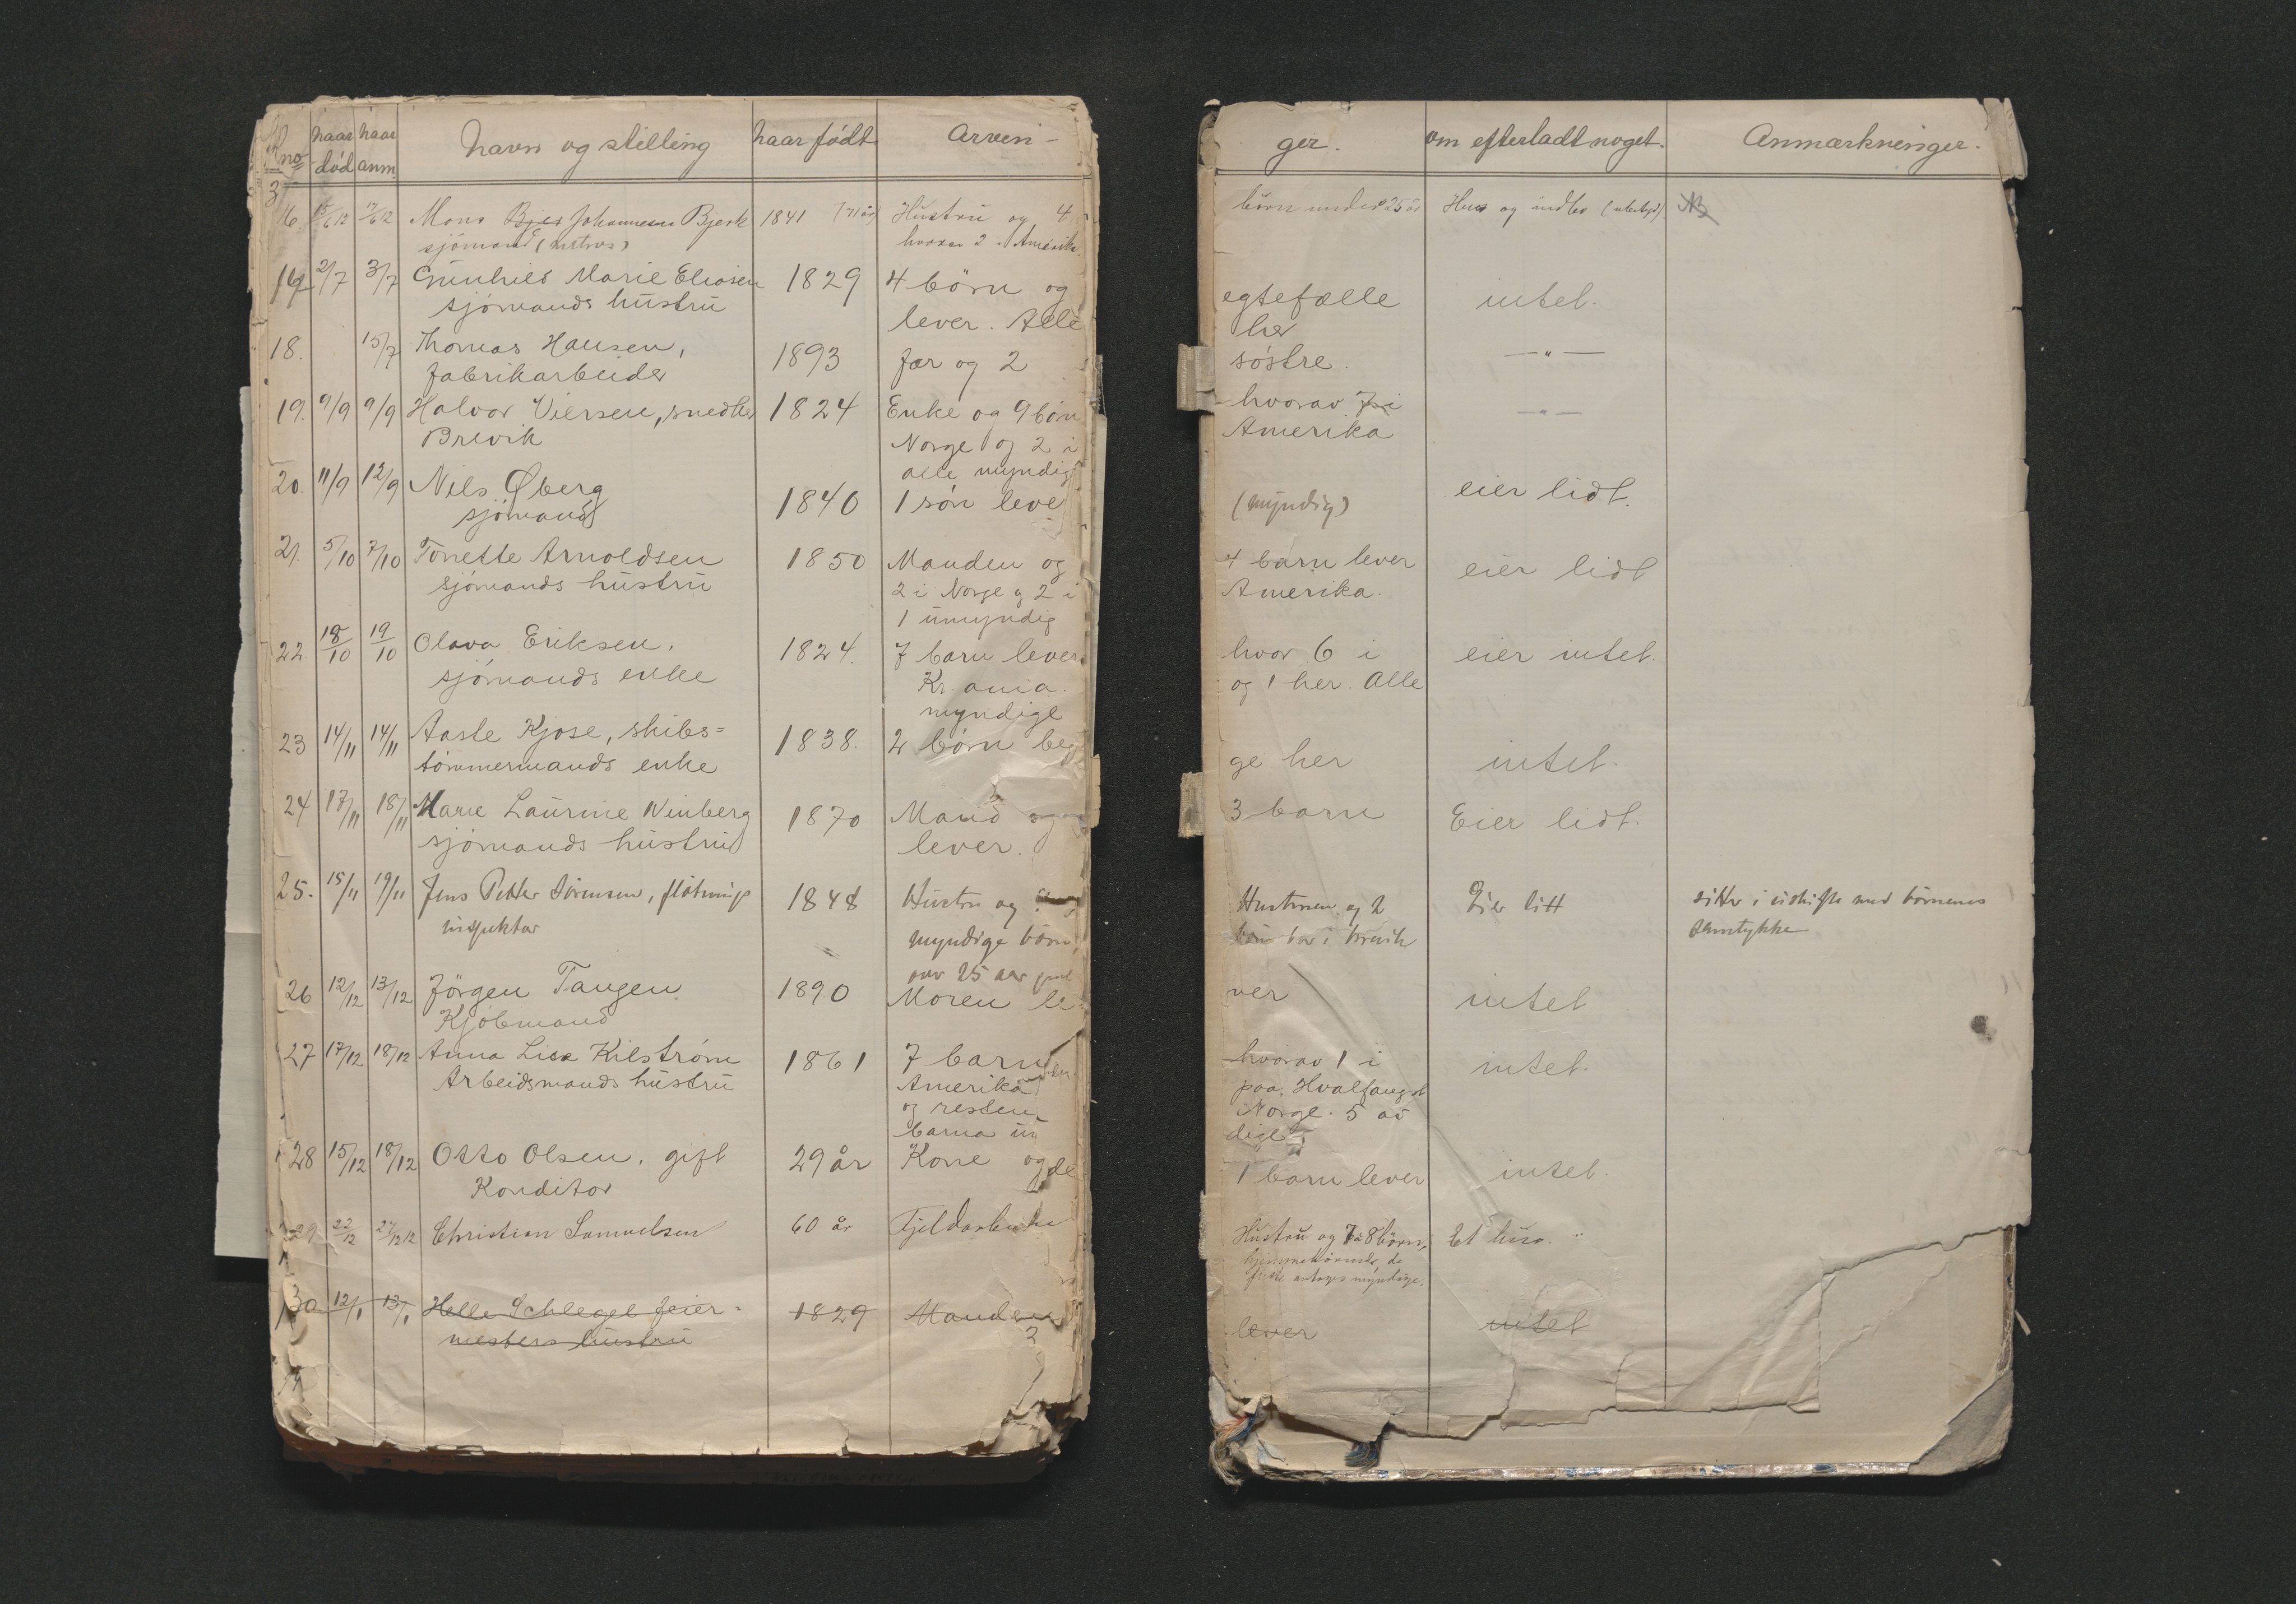 no
naar død
naar anm.
navn og stilling
naar født
Arvin-
3
16. 15/6 12 17/6 12 Mons Bjer Johannesen Bjerk 1841 (71 år) Hustru og 4
sjömand (matros) hvorav 2 i Amerika
17 2/7 3/7 Gunhild Marie Eliasen 1829 4 börn og
sjömands hustru lever. Alle
18. 15/7 Thomas Hansen, 1893 far og 2
fabrikarbeider
19. 9/9 9/9 Halvor Viersen, snedker 1824 Enke og 9 börn
Brevik Norge og 2 i
alle myndig
20. 11/9 12/9 Nils Øberg 1840 1 sön leve
sjömand
21. 5/10 7/10 Tonette Arnoldsen 1850 Manden og
sjömands hustru 2 i Norge og 2 i
1 umyndig
22 18/10 19/10 Olava Eriksen, 1824. 7 barn lever
sjömands enke Kr.ania.
myndige
23 14/11 14/11 Aaste Kjose, skibs= 1838. 2 börn beg
tömmermands enke
24 17/11 18/11 Marie Laurine Winberg 1870 Mand og
sjömands hustru lever.
25. 15/11 19/11 Jens Petter Sörensen, flötnings 1848 Hustru og
inspektør myndige börn
over 25 aar
26 12/12 13/12 Jörgen Tangen 1890 Moren le-
Kjöbmand
27 17/12 18/12 Anna Lisa Kilström 1861 7 barn
Arbeidsmands hustru Amerika en
og resten
barna um
28 15/12 18/12 Otto Olsen, gift 29 år Kone og de
Konditor
29 22/12 27/12 12 Christian Samuelsen 60 år Fjeldarbeider
30 12/1 13/1 Helle Schlegel feier= 1829 Manden
mesters hustru 2
ger. om efterladt noget. Anmærkninger.
börn under 25 år Hus og indbo (ubetyd) NB
egtefælle intet.
her
söstre. — " —
hvorav 7 i — " —
Amerika
(myndig) eier lidt.
4 barn lever eier lidt
Amerika.
hvor 6 i eier intet.
og 1 her. Alle
ge her intet.
3 barn Eier lidt.
Hustruen og 2 Eier litt sitter i uskifte med börnenes
börn bor i Brevik samtykke
ver intet
hvorav 1 i intet.
paa Hvalfangst
i Norge. 5 av
dige
1 barn lever intet.
Hustru og 7 à 8 börn, Et hus.
hjemmehörende, de
fleste antages myndige.
lever intet